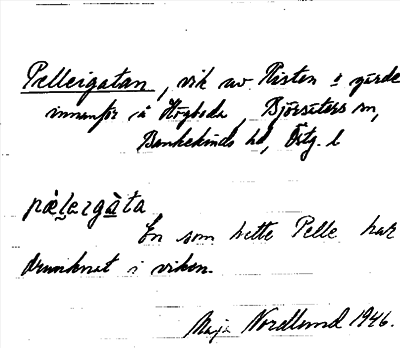 Pelleigatan, vik av Risten o gärde
innanför å Högboda, Björsäters sn,
Bankekinds hd, Östg. l
pæ̀lergàta
En som hette Pelle har
drunknat i viken.
Maja Nordlund 1946.